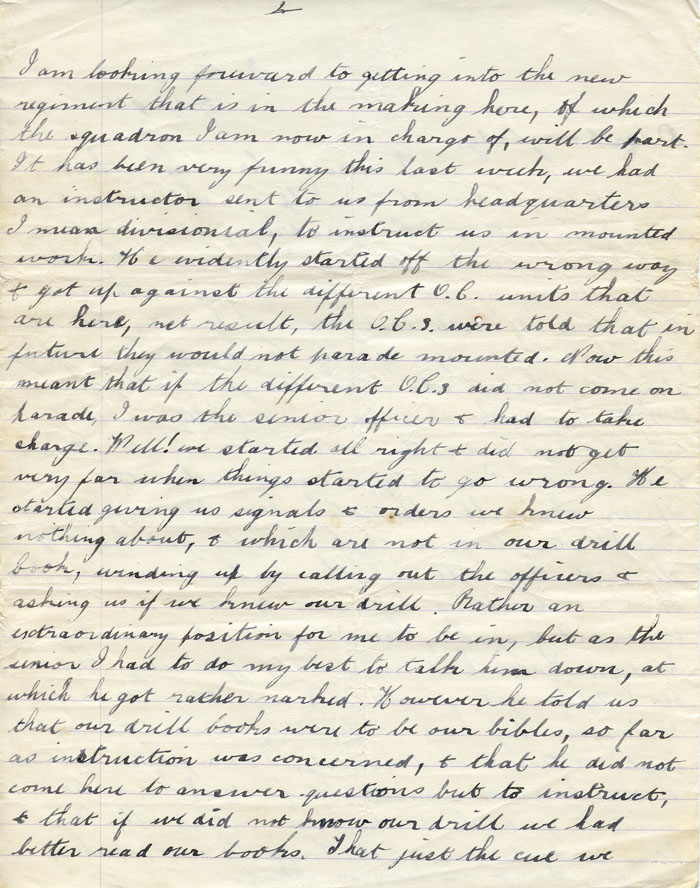 2
I am looking forward to getting into the new
regiment that is in the making here, of which
the squadron I am now in charge of, will be part.
It has been very funny this last week, we had
an instructor sent to us from headquarters
I mean divisional, to instruct us in mounted
work. He evidently started off the wrong way
& got up against the different O.C. units that
are here, net result, the O.C.s. were told that in
future they would not parade mounted. Now this
meant that if the different O.C.s did not come on
parade, I was the senior officer & had to take
charge. Well! we started all right & did not get
very far when things started to go wrong. He
started giving us signals & orders we knew
nothing about, & which are not in our drill
book, winding up by calling out the officers &
asking us if we knew our drill. Rather an
extraordinary position for me to be in, but as the
senior I had to do my best to talk him down, at
which he got rather narked. However he told us
that our drill books were to be our bibles, so far
as instruction was concerned, & that he did not
come here to answer questions but to instruct,
& that if we did not know our drill we had
better read our books. That just the cue we